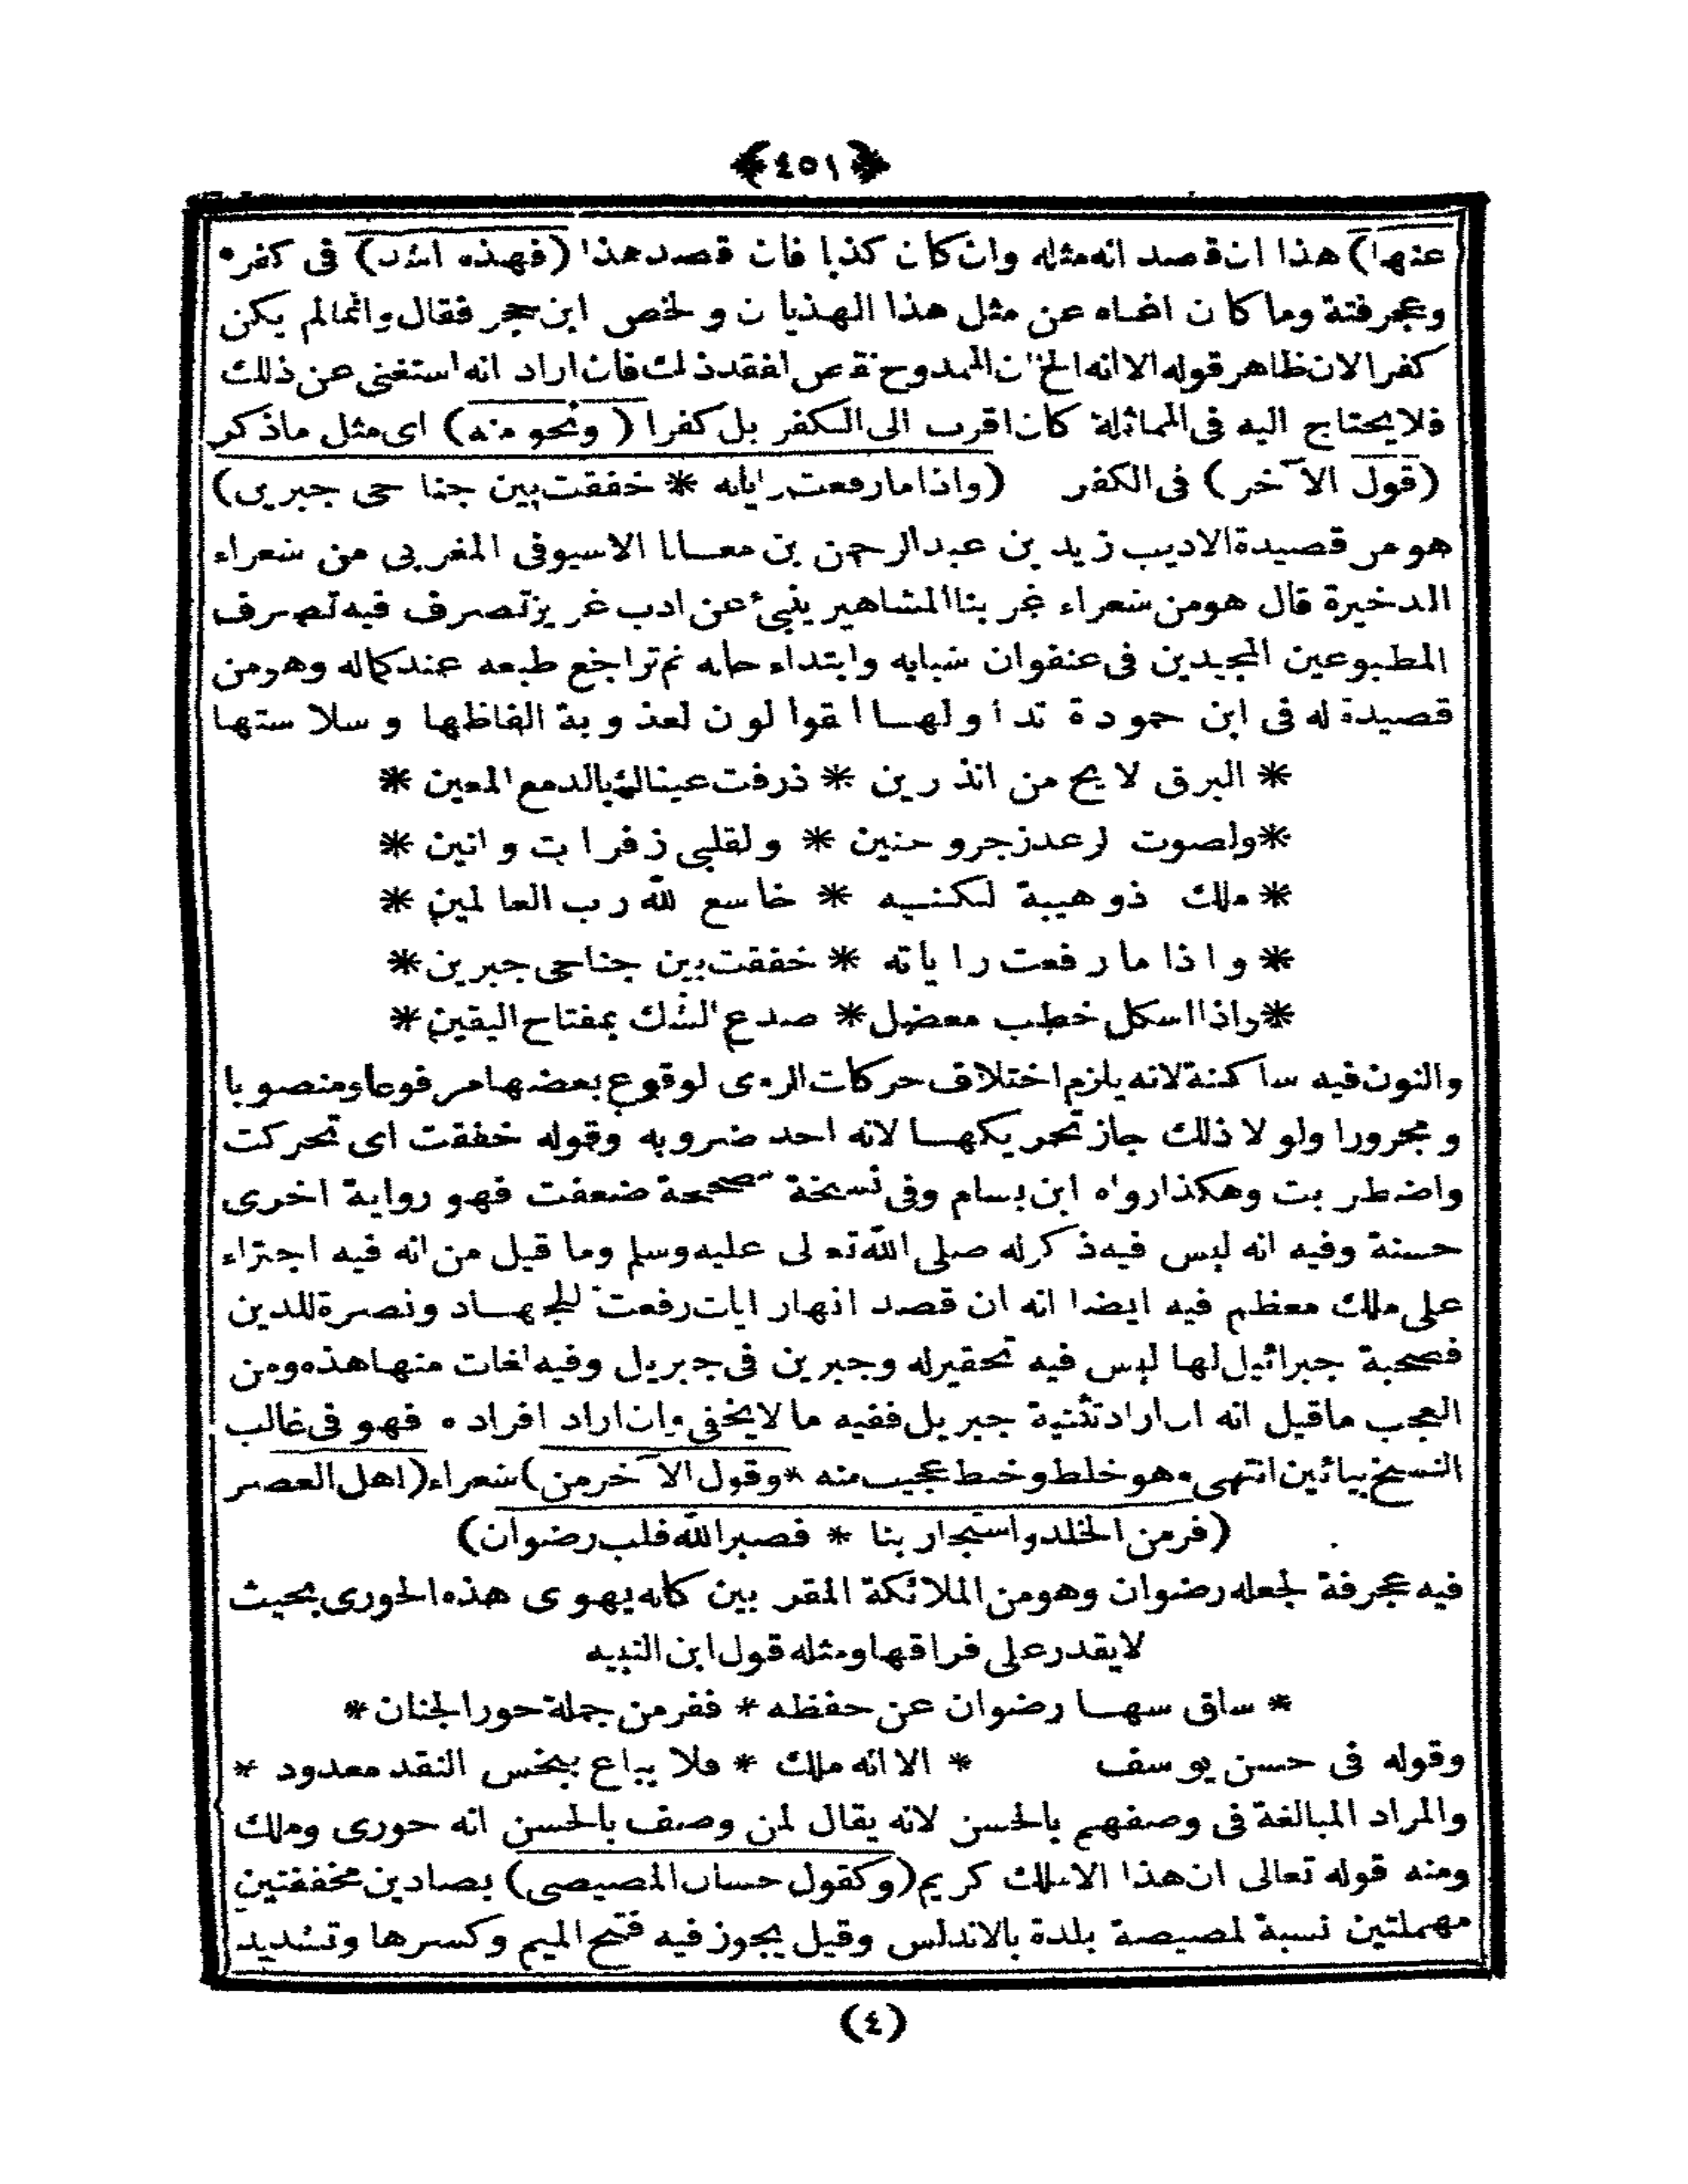 ﴿٤٥١﴾
عنها) هذا ان قصد انه مثله وان كان كذبا فان قصد هذا (فهذه اشد) فى كفره
وعجرفته وما كان اغناه عن مثل هذا الهذيان ولخص ابن حجر فقال وانما لم يكن
كفرا لان ظاهر قوله الا انه الخ ان الممدوح نقص لفقد ذلك فان اراد انه استغنى عن ذلك
فلا يحتاج اليه فى المماثلة كان اقرب الى الكفر بل كفرا (ونحو منه) اى مثل ماذكر
(قول الآخر) فى الكفر (واذا ما رفعت راياته * خفقت بين جناحى جبرين)
هو من قصيدة الاديب زيد بن عبد الرحمن بن معانا الاسيوفى المغربى من شعراء
الدخيرة قال هو من شعراء غربنا المشاهير ينبئ عن ادب غريز تصرف فيه تصرف
المطبوعين المجيدين فى عنفوان شبابه وابتداء حاله ثم تراجع طبعه عند كماله وهو من
قصيدة له فى ابن حمودة تداولها القوالون لعذوبة الفاظها وسلاستها
* البرق لايح من انذرين * ذرفت عيناك بالدمع المعين *
* ولصوت الرعد زجر وحنين * ولقلبى زفرات وانين *
* ملك ذو هيبة لكنه * خاشع لله رب العالمين *
* واذا ما رفعت راياته * خفقت بين جناحى جبرين *
* واذا اشكل خطب معضل * صدع الشك بمفتاح اليقين *
والنون فيه ساكنة لانه يلزم اختلاف حركات الروى لوقوع بعضها مرفوعا ومنصوبا
ومجرورا ولولا ذلك جاز تحريكها لانه احد ضروبه وقوله خفقت اى تحركت
واضطربت وهكذا رواه ابن بسام وفى نسخة مصححة ضعفت فهو رواية اخرى
حسنة وفيه انه ليس فيه ذكر له صلى الله تعالى عليه وسلم وما قيل من انه فيه اجتراء
على ملك معظم فيه ايضا انه ان قصد انها رايات رفعت للجهاد ونصرة للدين
فصحبة جبرائيل لها ليس فيه تحقير له وجبرين فى جبريل وفيه لغات منها هذه ومن
العجب ماقيل انه ان اراد تثنية جبريل ففيه ما لا يخفى وان اراد افراده فهو فى غالب
النسخ بيائين انتهى وهو خلط وخبط عجيب منه * وقول الآخر من) شعراء (اهل العصر
(فر من الخلد واستجار بنا * فصبر الله قلب رضوان)
فيه عجرفة لجعله رضوان وهو من الملائكة المقربين كانه يهوى هذه الحورى بحيث
لا يقدر على فراقها ومثله قول ابن النبيه
* ساق سها رضوان عن حفظه * ففر من جملة حور الجنان *
وقوله فى حسن يوسف * الا انه ملك * فلا يباع ببخس النقد معدود *
والمراد المبالغة فى وصفهم بالحسن لانه يقال لمن وصف بالحسن انه حورى وملك
ومنه قوله تعالى ان هذا الا ملك كريم (وكقول حسان المصيصى) بصادين مخففتين
مهملتين نسبة لمصيصة بلدة بالاندلس وقيل يجوز فيه فتح الميم وكسرها وتشديد
(٤)